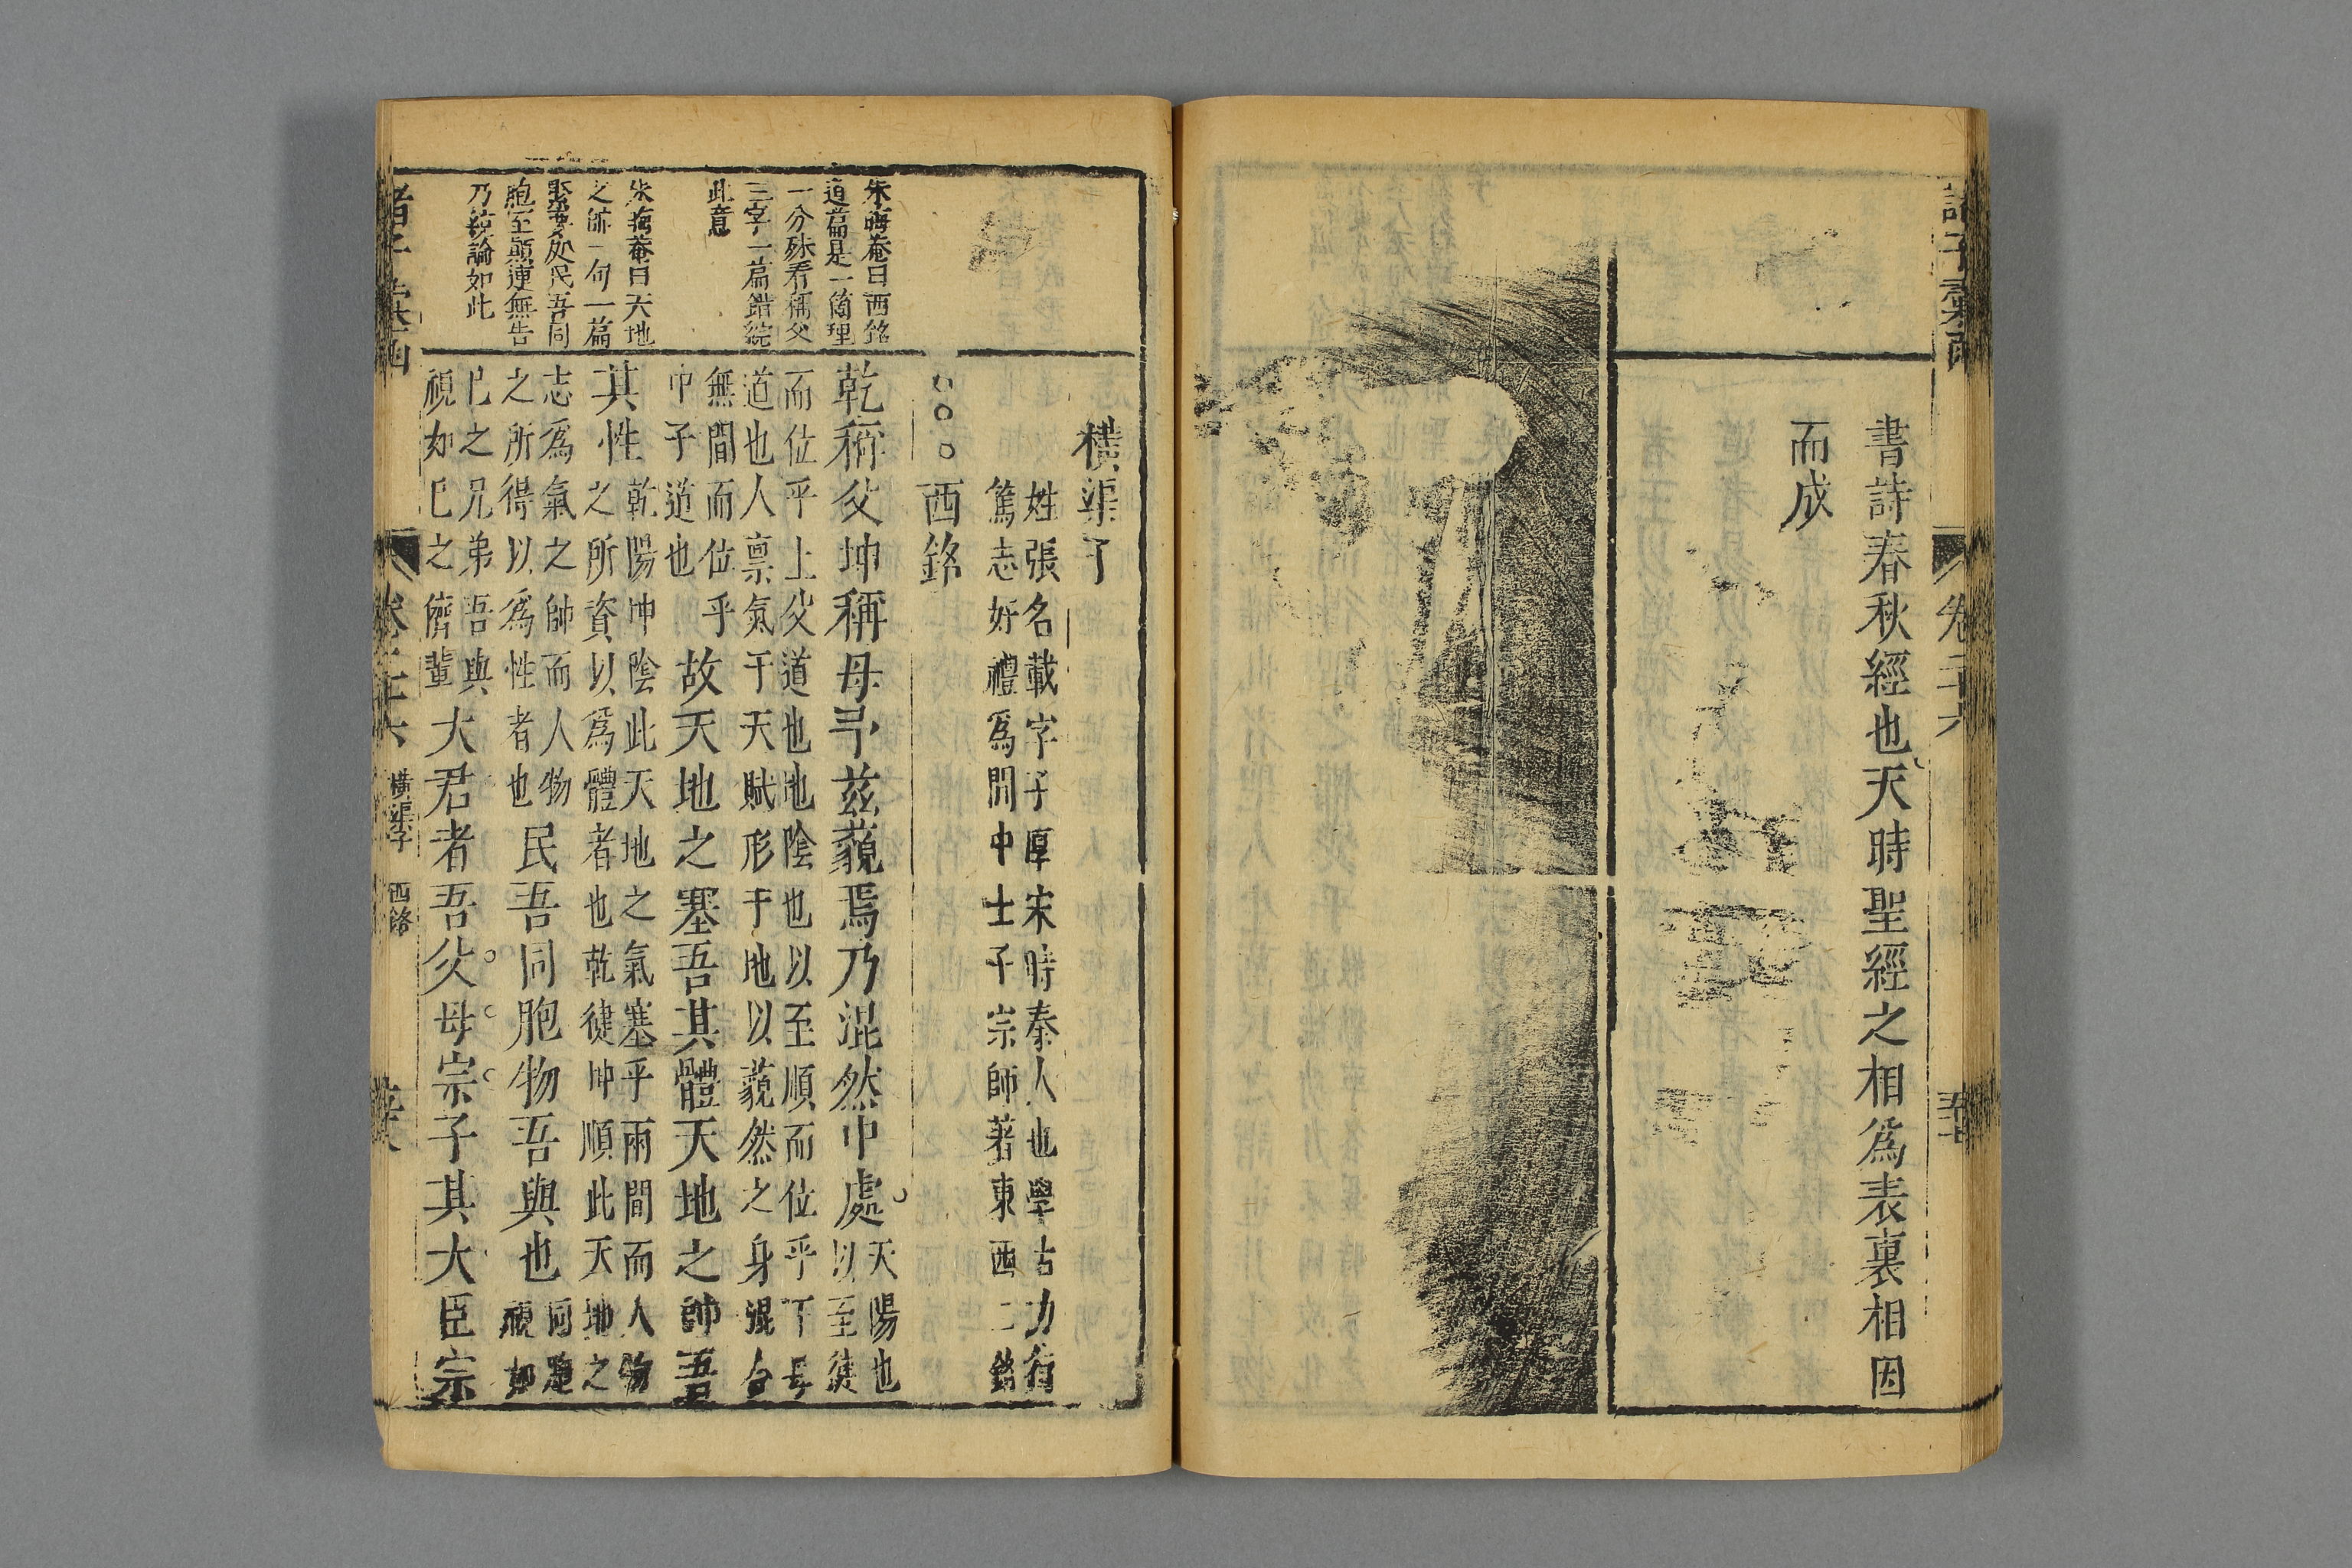 書詩春秋經也天時聖經之相爲表裏相因
而成
卷二十六
橫渠子
姓張名載字子厚宋時秦人也學古力行
篤志好禮爲關中士子宗師著東西二銘
○○○西銘
朱晦菴曰西銘
道篇是一箇理
一分殊看稱父
三字一篇錯綜
此意
朱晦菴曰天地
之帥一句一篇
緊要處民吾同
胞至顛連無告
乃統論如此
乾稱父坤稱母予茲藐焉乃混然中處
天陽也
以至徤
而位乎上父道也地陰也以至順而位乎下母
道也人禀氣于天賦形于地以藐然之身混合
無間而位乎
中子道也
故天地之塞吾其體天地之帥吾
其性
乾陽坤陰此天地之氣塞乎兩間而人物
之所資以爲體者也乾徤坤順此天地之
志爲氣之帥而人物
之所得以爲性者也
民吾同胞物吾與也
同胞
視如
己之兄弟吾與
視如己之儕輩
大君者吾父母宗子其大臣宗
卷二十六
橫渠子
西銘